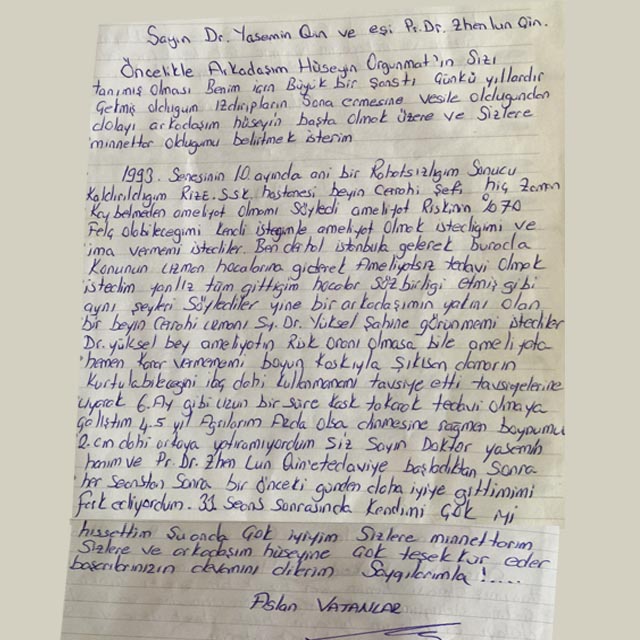 Sayın Dr. Yasemin Qın ve eşi Pr. Dr. Zhen lun Qin.
Öncelikle Arkadaşım Hüseyin Orgunmat'ın Sizi
tanımış olması Benim için Büyük bir Şanstı Çünkü yıllardır
Çekmiş olduğum Izdırıpların Sona ermesine vesile olduğundan
dolayı arkadaşım hüseyin başta olmak üzere ve Sizlere
minnettar olduğumu belirtmek isterim
1993. Senesinin 10. ayında ani bir Rahatsızlığım Sonucu
Kaldırıldığım RİZE. S.S.K. hastenesi beyin Cerrahi Şefi hiç Zaman
Kaybetmeden ameliyat olmamı Söyledi ameliyat Riskinin %70
Felç olabileceğimi kendi isteğimle ameliyat olmak istediğimi ve
ima vermemi istediler. Ben derhal istanbula gelerek burada
Konunun uzman hocalarına giderek Ameliyatsız tedavi Olmak
istedim yanlız tüm gittiğim hocalar Söz birliği etmiş gibi
aynı şeyleri Söylediler yine bir arkadaşımın yakını olan
bir beyin Cerrahi uzmanı Sy. Dr. Yüksel Şahine görünmemi istediler
Dr. yüksel bey ameliyatın Risk Oranı olmasa bile ameliyata
hemen karar vermememi boyun kaskıyla Sıkışan damarın
kurtulabileceğini ilaç dahi kullanmamamı tavsiye etti tavsiyelerine
uyarak 6. Ay gibi uzun bir süre kask takarak tedavi olmaya
çalıştım 4.5 yıl Ağrılarım Azda olsa dinmesine rağmen boynumu
2. cm dahi ortaya yatıramıyordum Siz Sayın Doktor yasemin
hanım ve Pr. Dr. Zhen Lun Qin'e tedaviye başladıktan Sonra
her seanstan Sonra bir önceki günden daha iyiye gittimimi
fark ediyordum. 31 Seans Sonrasında kendimi Çok iyi
hissettim Şu anda Çok iyiyim Sizlere minnettarım
Sizlere ve arkadaşım hüseyine Çok teşekkür eder
başarılarınızın devamını dilerim Saygılarımla !.....
Aslan VATANLAR